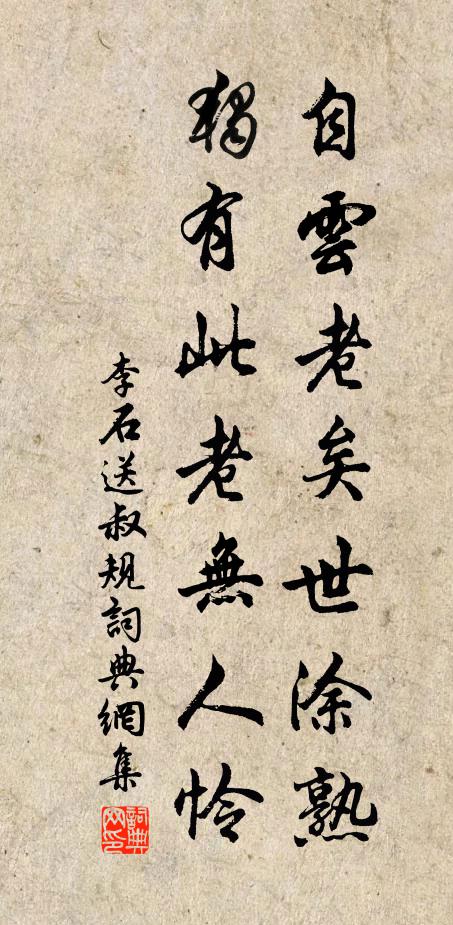 自雲老矣世涂熟
獨有此老無人怜
李石送叔規詞典網集
詞典网印